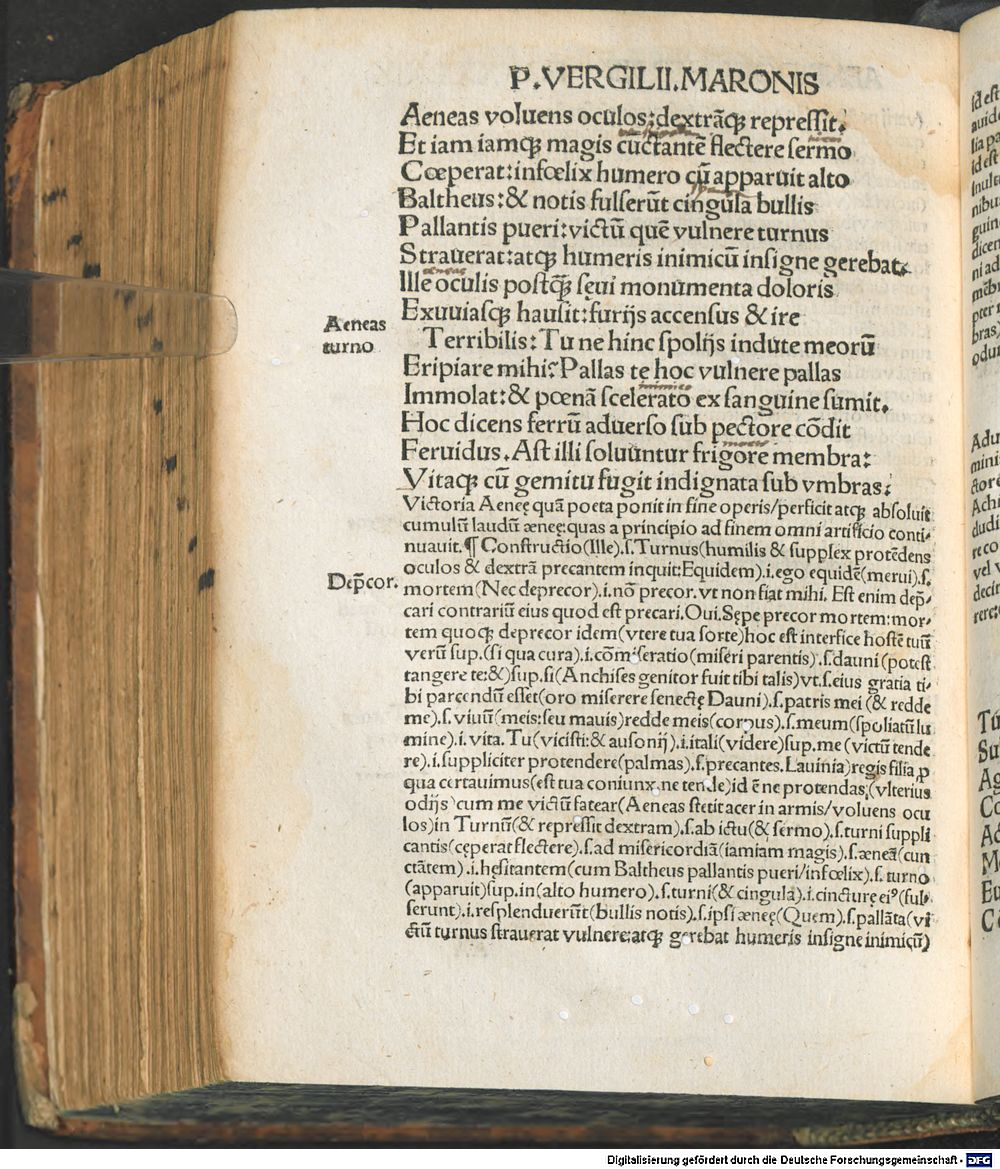 P. VERGILII. MARONIS
Aeneas voluens oculos: dextrãq; repressit.
Et iam iamq; magis cũctantẽ flectere sermo
Cœperat: infœlix humero cũ apparuit alto
Baltheus: & notis fulserũt cingula bullis
Pallantis pueri: victũ quẽ vulnere turnus
Straverat: atq; humeris inimicũ insigne gerebat.
aeneas
Ille oculis postq̃ sęui monumenta doloris
Exuuiasq; hausit: furijs accensus & ire
Aeneas
turno
Terribilis: Tu ne hinc spolijs indute meorũ
Eripiare mihi? Pallas te hoc vulnere pallas
inimico
Immolat: & pœnã scelerato ex sanguine sumit.
Hoc dicens ferrũ aduerso sub pectore cõdit
mortis
Feruidus. Ast illi soluuntur frigore membra:
Vitaq; cũ gemitu fugit indignata sub vmbras:
Victoria Aeneę quã poeta ponit in fine operis/perficit atq; absoluit
cumulũ laudũ æneę: quas a principio ad finem omni artificio conti-
nuauit. ¶ Constructio (Ille) .s. Turnus (humilis & supplex protẽdens
oculos & dextrã precantem inquit: Equidem) .i. ego equidẽ (merui) .s.
Dep̃cor.
mortem (Nec deprecor) .i. nõ precor. vt non fiat mihi. Est enim dep̃-
cari contrariũ eius quod est precari. Oui. Sępe precor mortem: mor-
tem quoq; deprecor idem (vtere tua sorte) hoc est interfice hostẽ tuũ
verũ sup. (si qua cura) .i. cõmiseratio (miseri parentis) .s. dauni (potest
tangere te: &) sup. si (Anchises genitor fuit tibi talis) vt .s. eius gratia ti-
bi parcendũ esset (oro miserere senectę Dauni) .s. patris mei (& redde
me) .s. viuũ (meis: seu mauis) redde meis (corpus) .s. meum (spoliatũ lu
mine) .i. vita. Tu (vicisti: & ausonij) .i. itali (videre) sup. me (victũ tende
re) .i. suppliciter protendere (palmas) .s. precantes. Lauinia) regis filia p̱
qua certauimus (est tua coniunx. ne tende) id ẽ ne protendas. (vlterius
odijs) cum me victũ fatear (Aeneas stetit acer in armis/voluens ocu
los) in Turnũ (& repressit dextram) .s. ab ictu (& sermo) .s. turni suppli
cantis (cęperat flectere) .s. ad misericordiã (iamiam magis) .s. æneã (cun
ctãtem) .i. hęsitantem (cum Baltheus pallantis pueri/infœlix) .s. turno
(apparuit) sup. in (alto humero) .s. turni (& cingula) .i. cincturę eiꝰ (ful-
serunt) .i. resplenduerũt (bullis notis) .s. ipsi æneę (Quem) .s. pallãta (vi
ctũ turnus strauerat vulnere: atq; gerebat humeris insigne inimicũ)
Digitalisierung gefördert durch die Deutsche Forschungsgemeinschaft - DFG